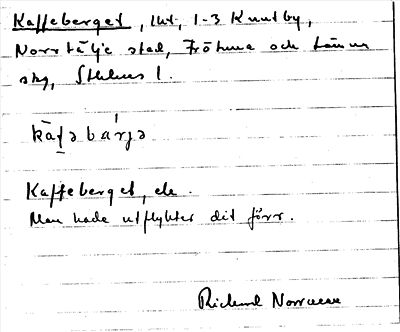 Kaffeberget, lht, 1-3 Knutby,
Norrtälje stad, Frötuna och Länna
skg, Sthlms l.
kàfəbàrjə
Kaffeberget, ele.
Man hade utflykter dit förr.
Richard